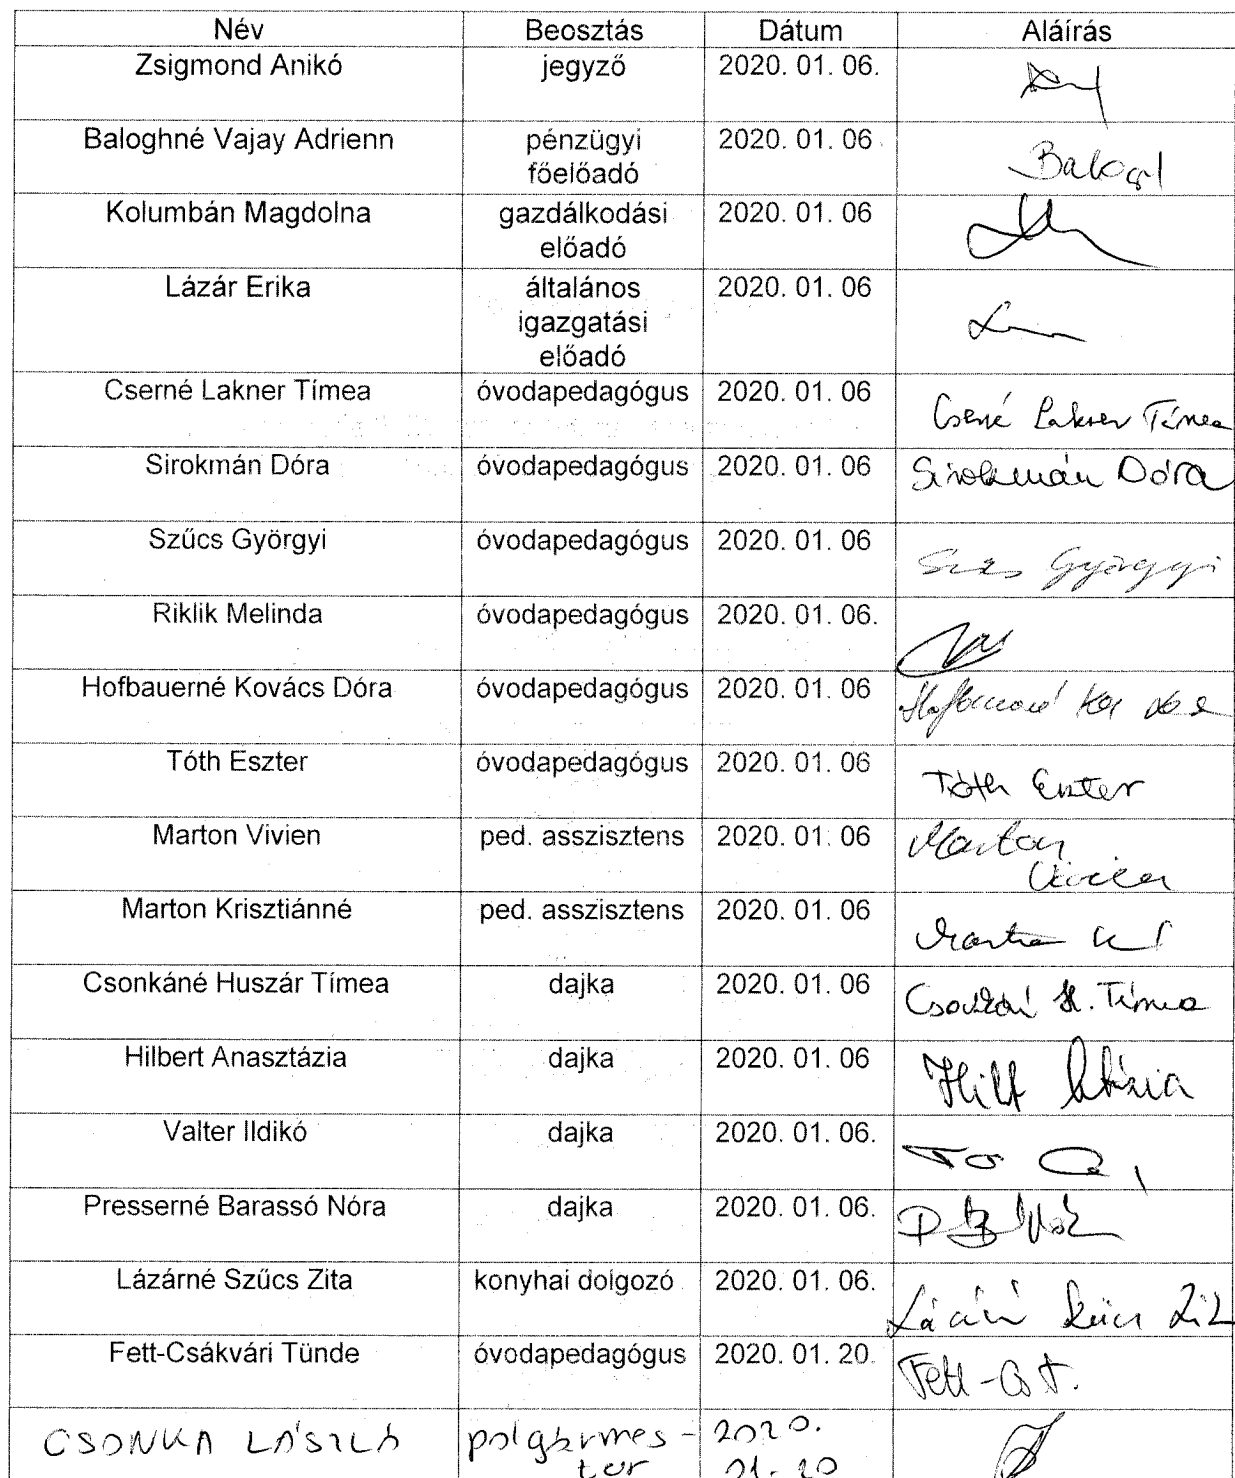 Név Beosztás Dátum Aláírás
Zsigmond Anikó jegyző 2020. 01. 06.
Baloghné Vajay Adrienn pénzügyi 2020. 01. 06.
főelőadó Balogh
Kolumbán Magdolna gazdálkodási 2020. 01. 06
előadó
Lázár Erika általános 2020. 01. 06
igazgatási
előadó
Cserné Lakner Tímea óvodapedagógus 2020. 01. 06
Cserné Lakner Tímea
Sirokmán Dóra óvodapedagógus 2020. 01. 06 Sirokmán Dóra
Szűcs Györgyi óvodapedagógus 2020. 01. 06
Szűcs Györgyi
Riklik Melinda óvodapedagógus 2020. 01. 06.
Hofbauerné Kovács Dóra óvodapedagógus 2020. 01. 06
Tóth Eszter óvodapedagógus 2020. 01. 06
Tóth Eszter
Marton Vivien ped. asszisztens 2020. 01. 06 Marton
Vivien
Marton Krisztiánné ped. asszisztens 2020. 01. 06
Csonkáné Huszár Tímea dajka 2020. 01. 06 Csonkáné H. Tímea
Hilbert Anasztázia dajka 2020. 01. 06
Valter Ildikó dajka 2020. 01. 06.
Presserné Barassó Nóra dajka 2020. 01. 06.
Lázárné Szűcs Zita konyhai dolgozó 2020. 01. 06.
Lázárné Szűcs Zita
Fett-Csákvári Tünde óvodapedagógus 2020. 01. 20.
Fett-Cs T.
CSONKA LÁSZLÓ polgármes- 2020.
ter 01. 20